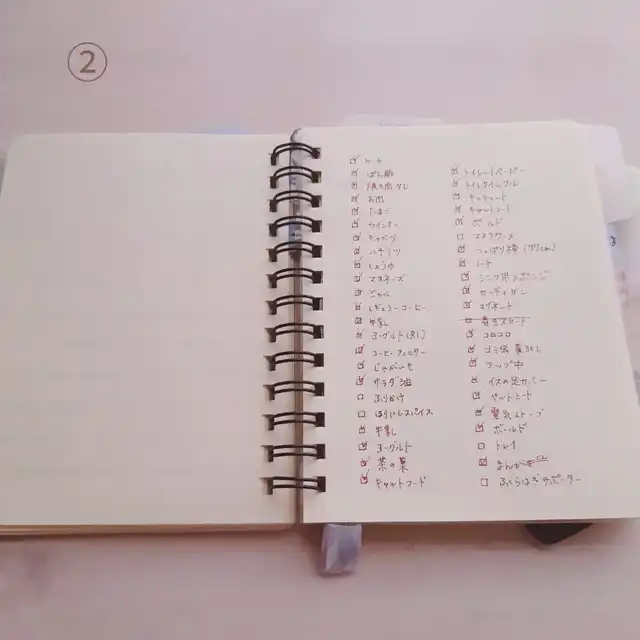 ②
ぽん酢
焼き肉タレ
お肉
たまご
ウインナー
キャベツ
ハチミツ
しょうゆ
マヨネーズ
ジャム
レギュラーコーヒー
牛乳
ヨーグルト(R1)
コーヒーフィルター
じゃがいも
サラダ油
ふりかけ
ほりにしスパイス
牛乳
ヨーグルト
茶の葉
キャットフード
トイレットペーパー
トイレクイックル
キャットフード
ボールド
つっぱり棒 (77cm)
シンク用スポンジ
カーディガン
マグネット
コロコロ
ゴミ袋 黄30L
ラップ中
イスの足カバー
ペットシート
電気ストーブ
ボールド
トレイ
まんが本
ふくらはぎサポーター